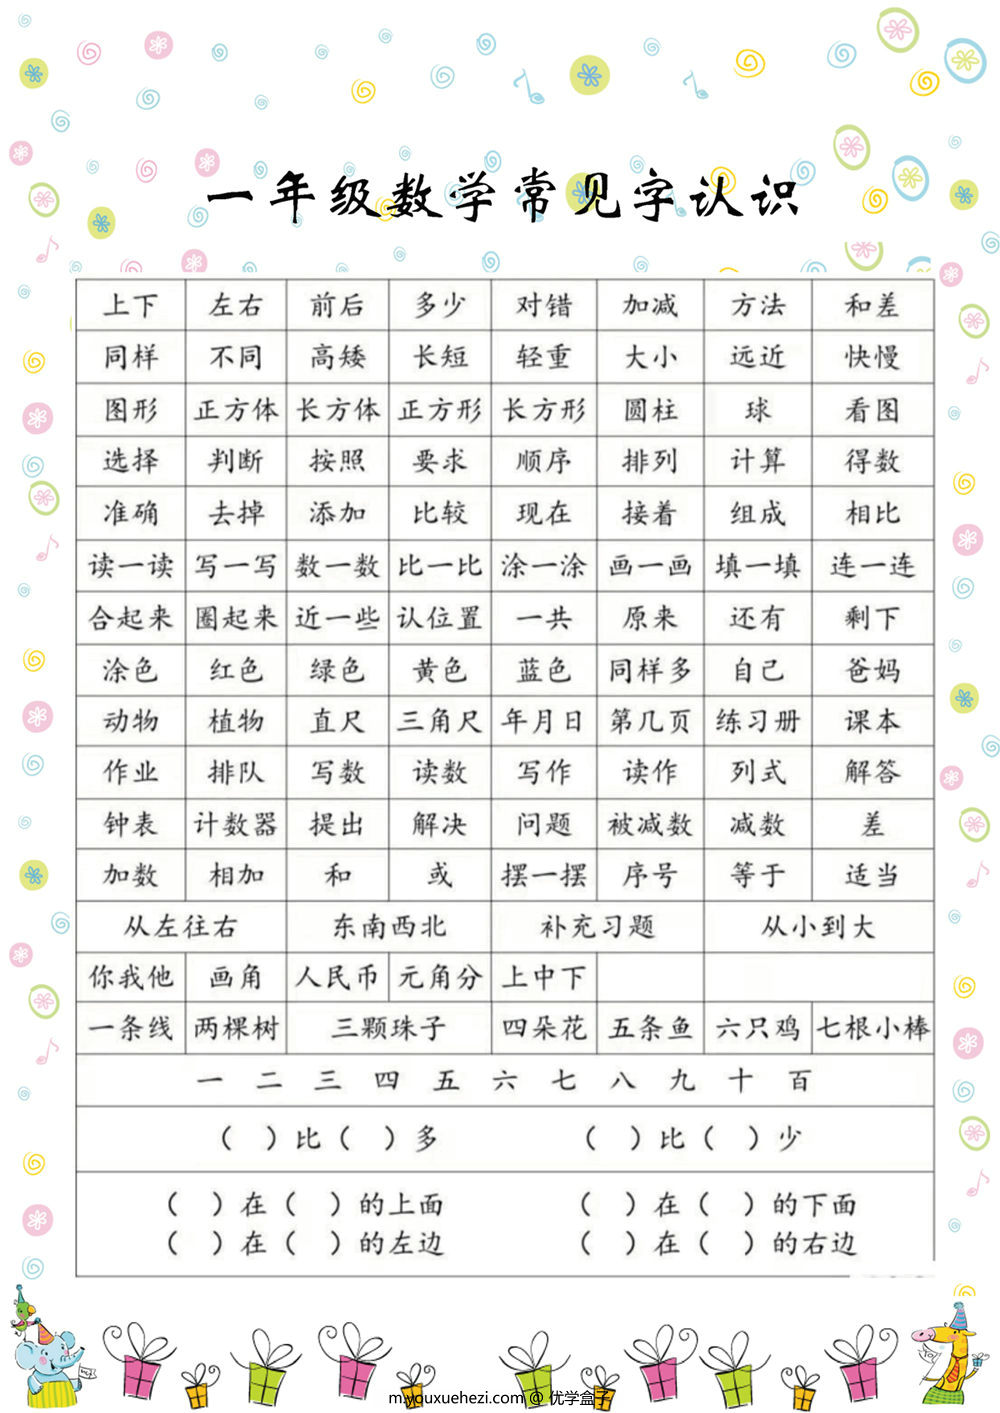 一年级数学常见字认识
上下 左右 前后 多少 对错 加减 方法 和差
同样 不同 高矮 长短 轻重 大小 远近 快慢
图形 正方体 长方体 正方形 长方形 圆柱 球 看图
选择 判断 按照 要求 顺序 排列 计算 得数
准确 去掉 添加 比较 现在 接着 组成 相比
读一读 写一写 数一数 比一比 涂一涂 画一画 填一填 连一连
合起来 圈起来 近一些 认位置 一共 原来 还有 剩下
涂色 红色 绿色 黄色 蓝色 同样多 自己 爸妈
动物 植物 直尺 三角尺 年月日 第几页 练习册 课本
作业 排队 写数 读数 写作 读作 列式 解答
钟表 计数器 提出 解决 问题 被减数 减数 差
加数 相加 和 或 摆一摆 序号 等于 适当
从左往右 东南西北 补充习题 从小到大
你我他 画角 人民币 元角分 上中下
一条线 两棵树 三颗珠子 四朵花 五条鱼 六只鸡 七根小棒
一 二 三 四 五 六 七 八 九 十 百
（ ）比（ ）多 （ ）比（ ）少
（ ）在（ ）的上面 （ ）在（ ）的下面
（ ）在（ ）的左边 （ ）在（ ）的右边
m.youxuehezi.com @ 优学盒子